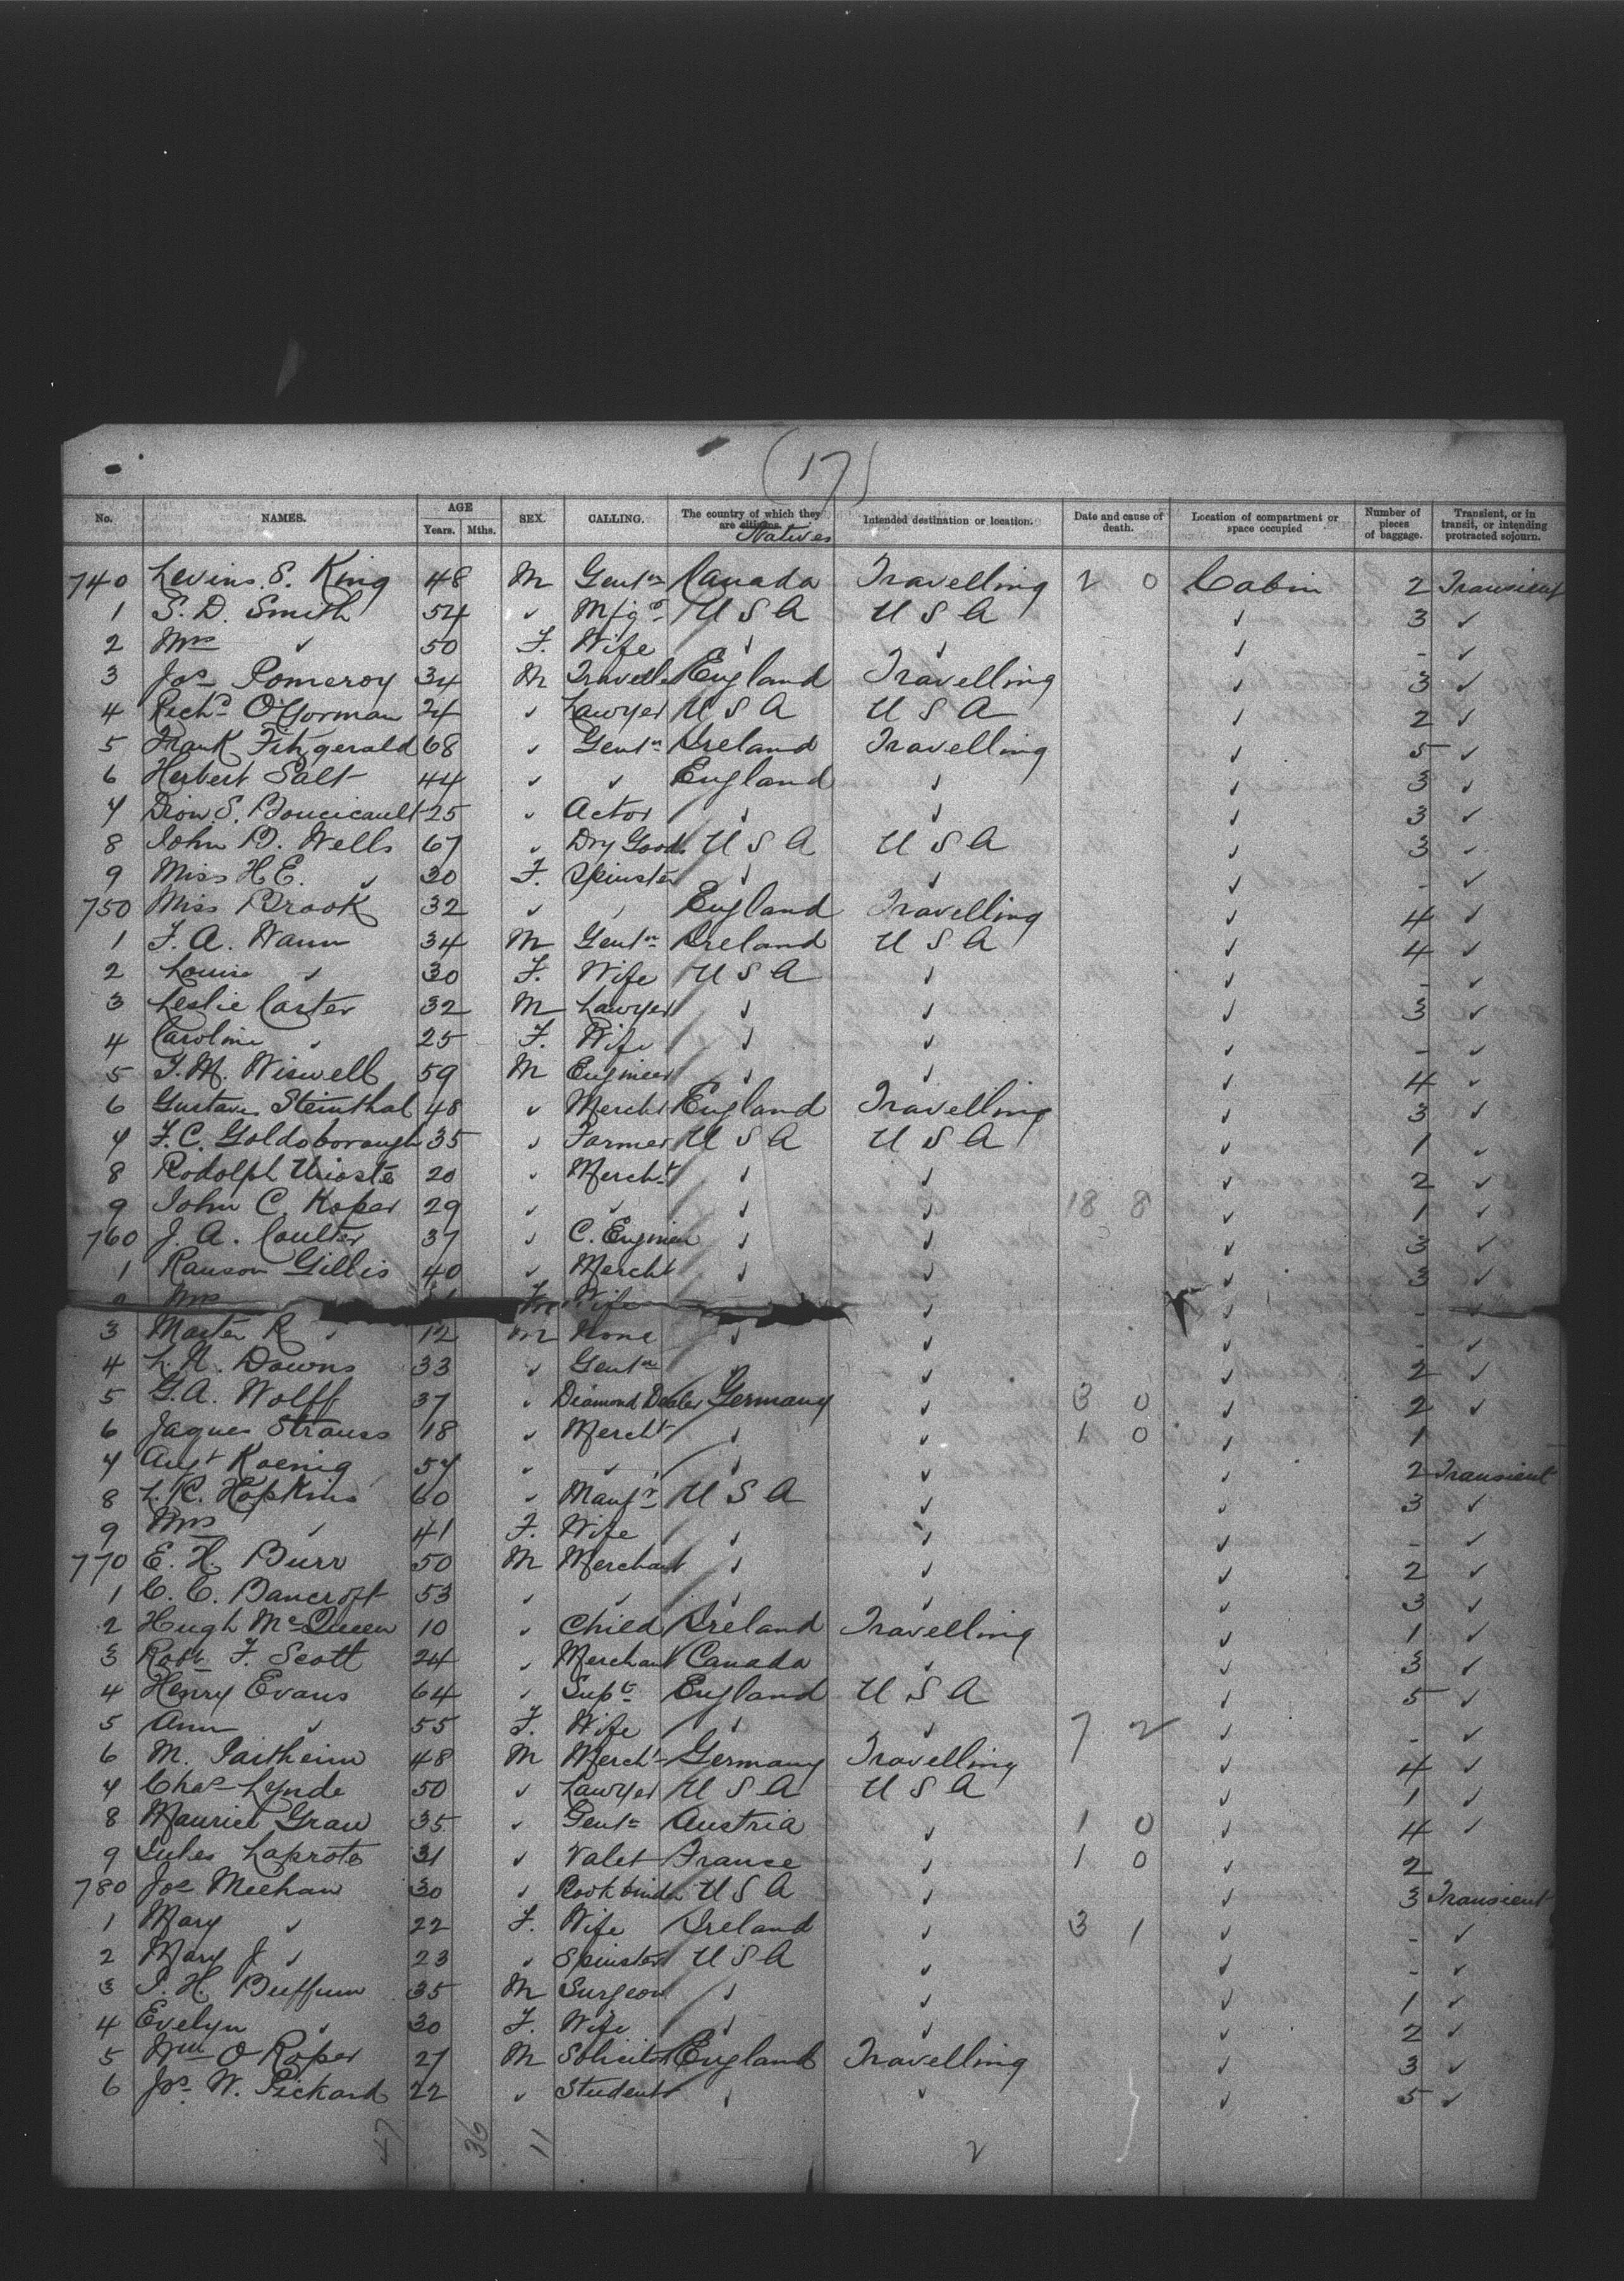 (17)
No. NAMES. AGE Years. Mths. SEX. CALLING. The country of which they are citizens. Natives Intended destination or location. Date and cause of death. Location of compartment or space occupied Number of pieces of baggage. Transient, or in transit, or intending protracted sojourn.
740 Levins S. King 48 M Gentn Canada Travelling 2 0 Cabin 2 Transient
1 S. D. Smith 54 ✓ Mfgr U S A U S A ✓ 3 ✓
2 Mrs ✓ 50 F. Wife ✓ ✓ ✓ - ✓
3 Jos Pomeroy 34 M Traveller England Travelling ✓ 3 ✓
4 Richd O'Gorman 24 ✓ Lawyer U S A U S A ✓ 2 ✓
5 Frank Fitzgerald 68 ✓ Gentn Ireland Travelling ✓ 5 ✓
6 Herbert Salt 44 ✓ ✓ England ✓ ✓ 3 ✓
7 Dion S. Boucicault 25 ✓ Actor ✓ ✓ ✓ 3 ✓
8 John D. Wells 67 ✓ Dry Goods U S A U S A ✓ 3 ✓
9 Miss H E. ✓ 30 F. Spinster ✓ ✓ ✓ - ✓
750 Miss Brook 32 ✓ ✓ England Travelling ✓ 4 ✓
1 F. A. Wann 34 M Gentn Ireland U S A ✓ 4 ✓
2 Louise ✓ 30 F. Wife U S A ✓ ✓ - ✓
3 Leslie Carter 32 M Lawyer ✓ ✓ ✓ 3 ✓
4 Caroline ✓ 25 F. Wife ✓ ✓ ✓ - ✓
5 T. M. Wiswell 59 M Engineer ✓ ✓ ✓ 4 ✓
6 Gustave Steinthal 48 ✓ Mercht England Travelling ✓ 3 ✓
7 F. C. Goldsborough 35 ✓ Farmer U S A U S A ✓ 1 ✓
8 Rodolph Urioste 20 ✓ Mercht ✓ ✓ ✓ 2 ✓
9 John C. Koper 29 ✓ ✓ ✓ ✓ 18 8 ✓ 1 ✓
760 J. A. Coulter 37 ✓ C. Engineer ✓ ✓ ✓ 3 ✓
1 Ransom Gillis 40 ✓ Mercht ✓ ✓ ✓ 3 ✓
2 Mrs Wife ✓ ✓ - ✓
3 Master R ✓ 12 M None ✓ ✓ ✓ - ✓
4 L. N. Downs 33 ✓ Gentn ✓ ✓ ✓ 2 ✓
5 G. A. Wolff 37 ✓ Diamond Dealer Germany ✓ 3 0 ✓ 2 ✓
6 Jaques Strauss 18 ✓ Mercht ✓ ✓ 1 0 ✓ 1
7 Augt Koenig 57 ✓ ✓ ✓ ✓ ✓ 2 Transient
8 L. R. Hopkins 60 ✓ Manfr U S A ✓ ✓ 3 ✓
9 Mrs ✓ 41 F. Wife ✓ ✓ ✓ - ✓
770 E. H. Burr 50 M Merchant ✓ ✓ ✓ 2 ✓
1 C. C. Bancroft 53 ✓ ✓ ✓ ✓ ✓ 3 ✓
2 Hugh McQueen 10 ✓ Child Ireland Travelling ✓ 1 ✓
3 Robt F. Scott 24 ✓ Merchant Canada ✓ ✓ 3 ✓
4 Henry Evans 64 ✓ Supt England U S A ✓ 5 ✓
5 Ann ✓ 55 F. Wife ✓ ✓ 7 2 ✓ - ✓
6 M. Pastheim 48 M Mercht Germany Travelling ✓ 4 ✓
7 Chas Lynde 50 ✓ Lawyer U S A U S A ✓ 1 ✓
8 Maurice Grau 35 ✓ Gentn Austria ✓ 1 0 ✓ 4 ✓
9 Jules Laprote 31 ✓ Valet France ✓ 1 0 ✓ 2
780 Jos Meehan 30 ✓ Bookbinder U S A ✓ ✓ 3 Transient
1 Mary ✓ 22 F. Wife Ireland ✓ 3 1 ✓ - ✓
2 Mary J ✓ 23 ✓ Spinster U S A ✓ ✓ - ✓
3 J. H. Buffum 35 M Surgeon ✓ ✓ ✓ 1 ✓
4 Evelyn ✓ 30 F. Wife ✓ ✓ ✓ 2 ✓
5 Wm O Roper 27 M Solicitor England Travelling ✓ 3 ✓
6 Jos. W. Pickard 22 ✓ Student ✓ ✓ ✓ 5 ✓
47 36 11 2